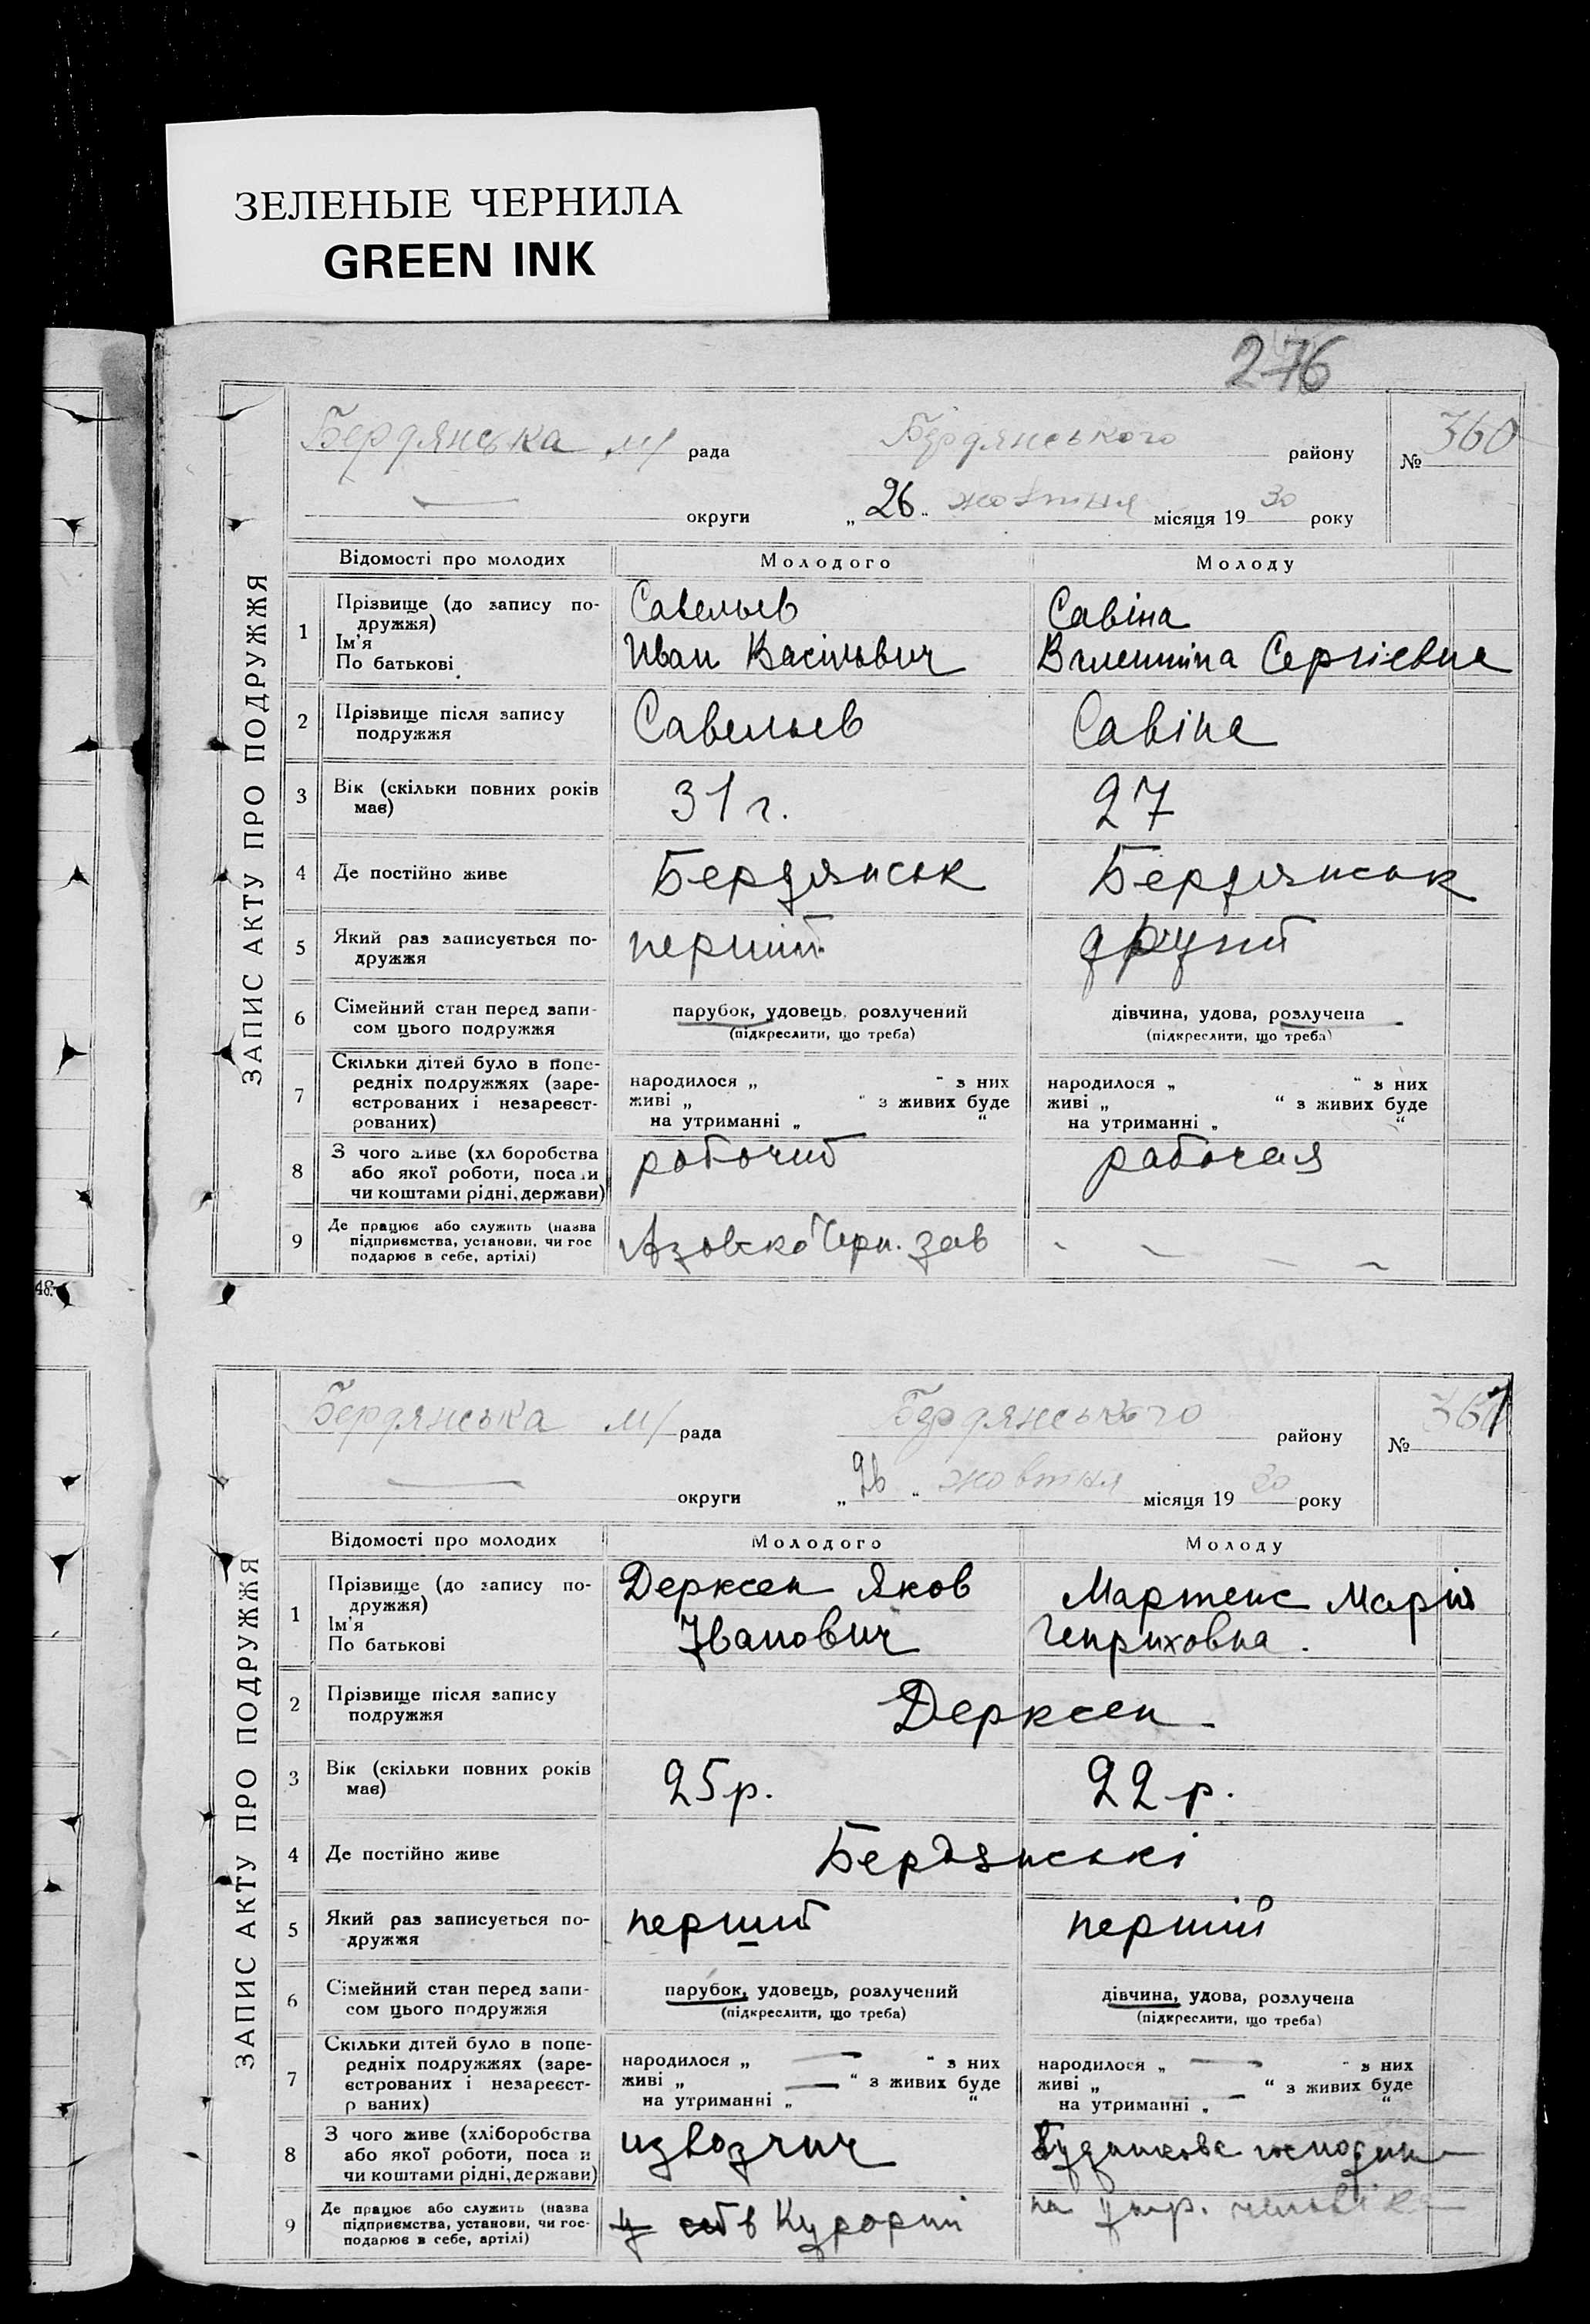 ЗЕЛЕНЫЕ ЧЕРНИЛА
GREEN INK
276
ЗАПИС АКТУ ПРО ПОДРУЖЖЯ
Бердянська м/ рада Бердянського району № 360
округи „26“ жовтня місяця 1930 року
Відомості про молодих Молодого Молоду
1 Прізвище (до запису по-
дружжя)
Ім'я
По батькові
Савельев
Иван Васільвич
Савіна
Валентіна Сергієвна
2 Прізвище після запису
подружжя
Савельев Савіна
3 Вік (скільки повних років
має)
31 г. 27
4 Де постійно живе Бердянськ Бердянськ
5 Який раз записується по-
дружжя
перший другий
6 Сімейний стан перед запи-
сом цього подружжя
парубок, удовець, розлучений
(підкреслити, що треба)
дівчина, удова, розлучена
(підкреслити, що треба)
7 Скільки дітей було в попе-
редніх подружжях (заре-
єстрованих і незареєст-
рованих)
народилося „ “ з них
живі „ “ з живих буде
на утриманні „ “
народилося „ “ з них
живі „ “ з живих буде
на утриманні „ “
8 З чого живе (хл боробства
або якої роботи, поса и
чи коштами рідні, держави)
робочий рабочая
9 Де працює або служить (назва
підприємства, установи, чи гос
подарює в себе, артілі)
Азовско Чорн. зав
48.
ЗАПИС АКТУ ПРО ПОДРУЖЖЯ
Бердянська м/ рада Бердянського району № 361
округи „26“ жовтня місяця 1930 року
Відомості про молодих Молодого Молоду
1 Прізвище (до запису по-
дружжя)
Ім'я
По батькові
Дерксен Яков
Іванович
Мартенс Марія
Генриховна.
2 Прізвище після запису
подружжя
Дерксен
3 Вік (скільки повних років
має)
25 р. 22 р.
4 Де постійно живе Бердянські
5 Який раз записується по-
дружжя
перший перший
6 Сімейний стан перед запи-
сом цього подружжя
парубок, удовець, розлучений
(підкреслити, що треба)
дівчина, удова, розлучена
(підкреслити, що треба)
7 Скільки дітей було в попе-
редніх подружжях (заре-
єстрованих і незареєст-
р ваних)
народилося „ — “ з них
живі „ — “ з живих буде
на утриманні „ “
народилося „ — “ з них
живі „ — “ з живих буде
на утриманні „ “
8 З чого живе (хліборобства
або якої роботи, поса и
чи коштами рідні, держави)
извозчич
9 Де працює або служить (назва
підприємства, установи, чи гос-
подарює в себе, артілі)
в Курорті
на утр. чоловіка